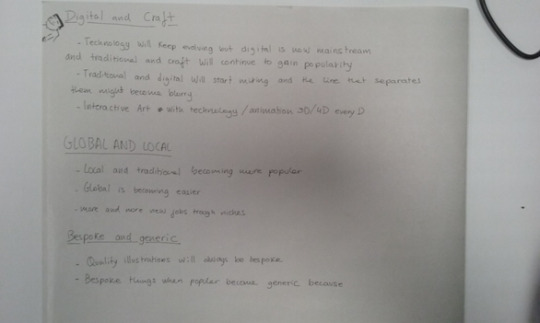 Digital and Craft
- Technology will keep evolving but digital is now mainstream
and traditional and craft will continue to gain popularity
- Traditional and digital will start mixing and the line that separates
them might become blurry
- Interactive Art with technology / animation 3D/4D every D
GLOBAL AND LOCAL
- Local and traditional becoming more popular
- Global is becoming easier
- more and more new jobs trough niches
Bespoke and generic
- Quality illustrations will always be bespoke
- Bespoke things when popular become generic because